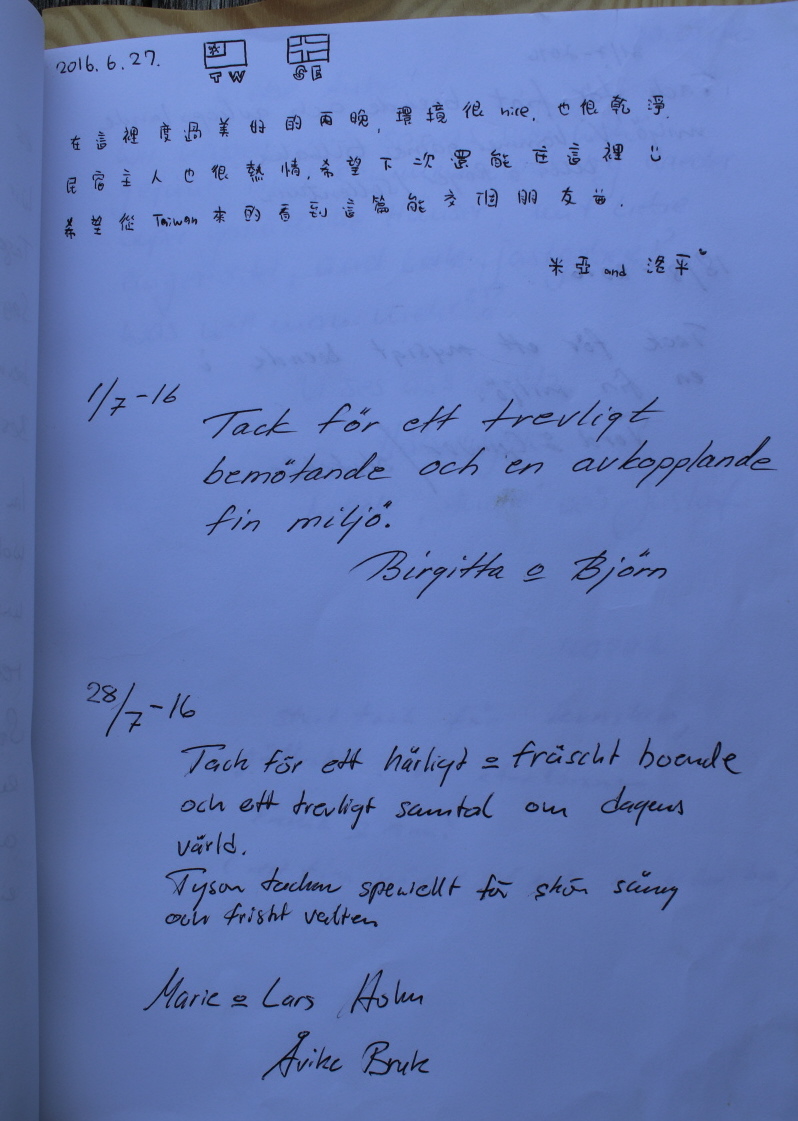 2016.6.27.
TW SE
在這裡度過美好的兩晚,環境很nice,也很乾淨.
民宿主人也很熱情,希望下次還能在這裡
希望從Taiwan來的看到這篇能交個朋友.
米亞 and 洛平
1/7-16
Tack för ett trevligt
bemötande och en avkopplande
fin miljö.
Birgitta o Björn
28/7-16
Tack för ett härligt o fräscht boende
och ett trevligt samtal om dagens
värld.
Tyson tackar speciellt för skön säng
och friskt vatten
Marie o Lars Holm
Åvike Bruk